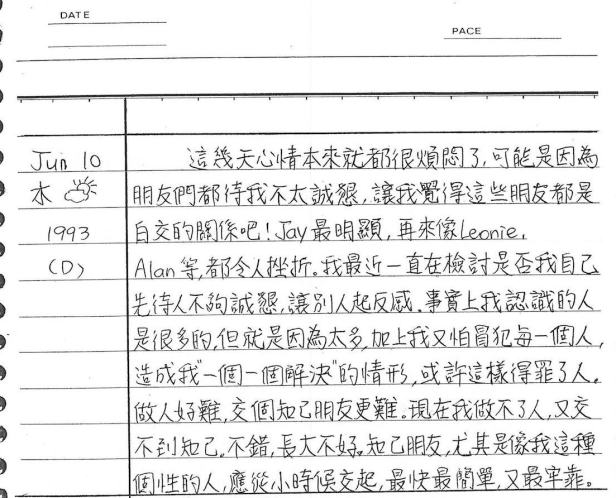 DATE
PACE
Jun 10 這幾天心情本來就都很煩悶了,可能是因為
木 朋友們都待我不太誠懇,讓我覺得這些朋友都是
1993 白交的關係吧!Jay最明顯,再來像Leonie,
(D) Alan等,都令人挫折。我最近一直在檢討是否我自己
先待人不夠誠懇,讓別人起反感。事實上我認識的人
是很多的,但就是因為太多,加上我又怕冒犯每一個人,
造成我"一個一個解決"的情形,或許這樣得罪了人。
做人好難,交個知己朋友更難。現在我做不了人,又交
不到知己。不錯,長大不好。知己朋友,尤其是像我這種
個性的人,應從小時候交起,最快最簡單,又最牢靠。